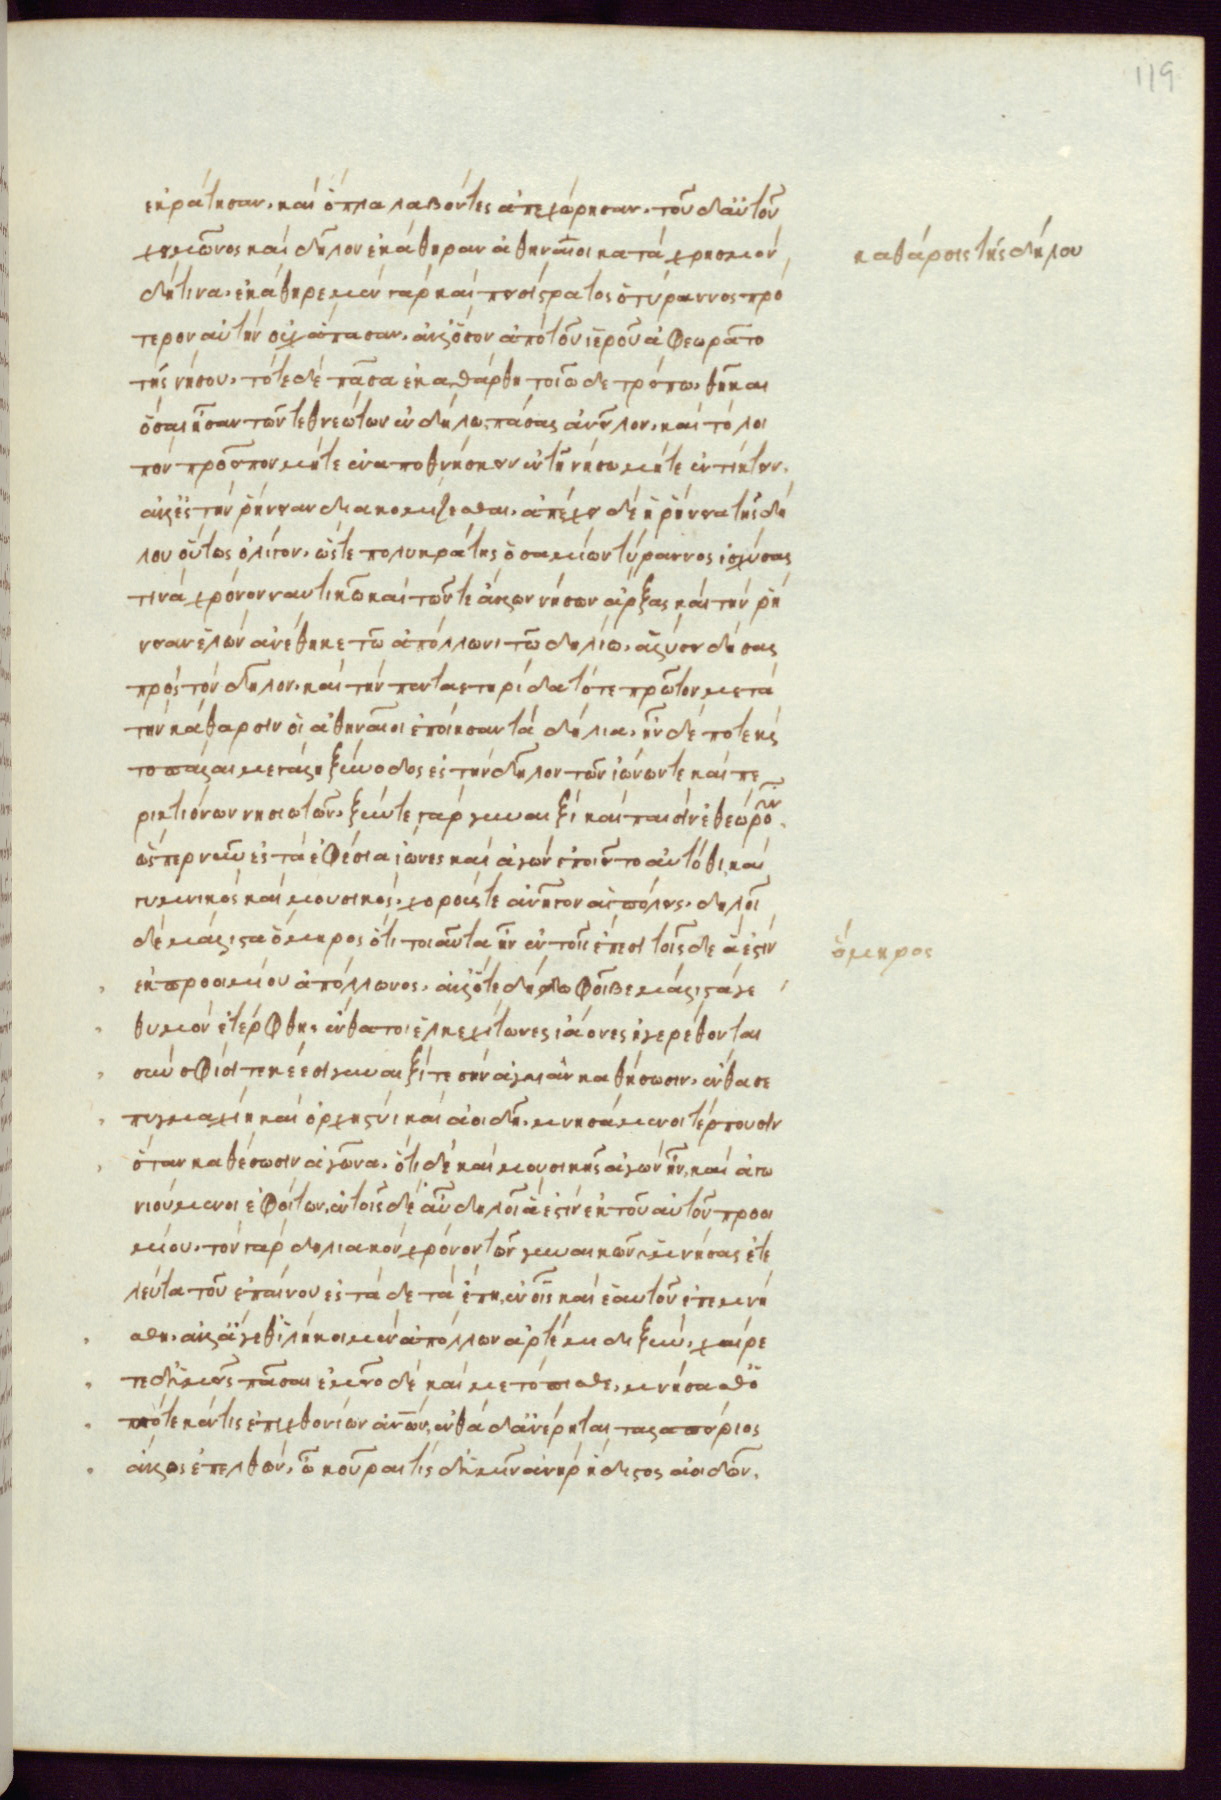 119
ἐκράτησαν. καὶ ὅπλα λαβόντες ἀπεχώρησαν. τοῦ δ' αὐτοῦ
χειμῶνος καὶ δῆλον ἐκάθηραν ἀθηναῖοι κατὰ χρησμὸν
δή τινα. ἐκάθηρε μὲν γὰρ καὶ πεισίστρατος ὁ τύραννος πρό
τερον αὐτὴν οὐχ ἅπασαν. ἀλλ' ὅσον ἀπὸ τοῦ ἱεροῦ ἀφεωρᾶτο
τῆς νήσου. τότε δὲ πᾶσα ἐκαθάρθη τοιῶδε τρόπω. θῆκαι
ὅσαι ἦσαν τῶν τεθνεώτων ἐν δήλω, πάσας ἀνεῖλον. καὶ τὸ λοι
πὸν προεῖπον μήτε ἐναποθνήσκειν ἐν τῆ νήσω μήτε ἐντίκτειν.
ἀλλ' ἐς τὴν ῥήνειαν διακομίζεσθαι. ἀπέχει δὲ ἡ ῥήνεια τῆς δή
λου οὕτως ὀλίγον. ὥστε πολυκράτης ὁ σαμίων τύραννος ἰσχύσας
τινὰ χρόνον ναυτικῶ καὶ τῶν τε ἄλλων νήσων ἄρξας καὶ τὴν ῥή
νειαν ἑλὼν ἀνέθηκε τῶ ἀπόλλωνι τῶ δηλίω. ἁλύσει δήσας
πρὸς τὴν δῆλον. καὶ τὴν πενταετηρίδα τότε πρῶτον μετὰ
τὴν κάθαρσιν οἱ ἀθηναῖοι ἐποίησαν τὰ δήλια. ἦν δέ ποτε καὶ
τὸ πάλαι μεγάλη ξύνοδος ἐς τὴν δῆλον τῶν ἰώνων τε καὶ πε
ρικτιόνων νησιωτῶν. ξύν τε γὰρ γυναιξὶ καὶ παισὶν ἐθεώρουν.
ὥσπερ νῦν ἐς τὰ ἐφέσια ἴωνες καὶ ἀγὼν ἐποιεῖτο αὐτόθι καὶ
γυμνικὸς καὶ μουσικός. χορούς τε ἀνῆγον αἱ πόλεις. δηλοῖ
δὲ μάλιστα ὅμηρος ὅτι τοιαῦτα ἦν ἐν τοῖς ἔπεσι τοῖσδε ἅ ἐστιν
ἐκ προοιμίου ἀπόλλωνος. ἀλλ' ὅτε δήλω φοῖβε μάλιστά γε
θυμὸν ἐτέρφθης ἔνθα τοι ἑλκεχίτωνες ἰάονες ἠγερέθονται
σὺν σφίσι τεκέεσι γυναιξί τε σὴν ἐς ἀγυιὰν καθήσωσιν. ἔνθα σε
πυγμαχίη καὶ ὀρχηστυῖ καὶ ἀοιδῆ. μνησάμενοι τέρπουσιν
ὅταν καθέσωσιν ἀγῶνα. ὅτι δὲ καὶ μουσικῆς ἀγὼν ἦν, καὶ ἀγω
νιούμενοι ἐφοίτων. ἐν τοῖσδε αὖ δηλοῖ ἅ ἐστιν ἐκ τοῦ αὐτοῦ προοι
μίου. τὸν γὰρ δηλιακὸν χρόνον τῶν γυναικῶν ὑμνήσας ἐτε
λεύτα τοῦ ἐπαίνου ἐς τάδε τὰ ἔπη. ἐν οἷς καὶ ἑαυτοῦ ἐπεμνή
σθη. ἀλλ' ἄγεθ' ἱλήκοι μὲν ἀπόλλων ἀρτέμιδι ξύν. χαίρε
τε δ' ὑμεῖς πᾶσαι ἐμεῖο δὲ καὶ μετόπισθε. μνήσασθ' ὁ
ππότε κέν τις ἐπιχθονίων ἀνθρώπων. ἐνθάδ' ἀνείρηται ταλαπείριος
ἄλλος ἐπελθών. ὦ κοῦραι τίς δ' ὑμῖν ἀνὴρ ἥδιστος ἀοιδῶν.
καθάρσις τῆς δήλου
ὅμηρος